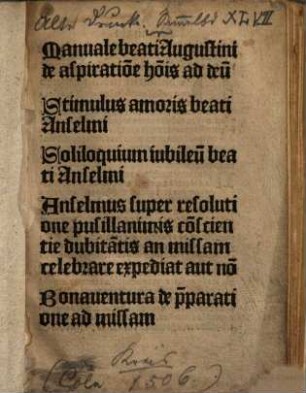 Manuale beati Augustini
de aspiratiõe hõis ad deũ
Stimulus amoris beati
Anselmi
Soliloquium iubileũ bea
ti Anselmi
Anselmus super resoluti
one pusillanimis cõscien
tie dubitãtis an missam
celebrare expediat aut nõ
Bonauentura de p̃parati
one ad missam
(Cöln 1506.)